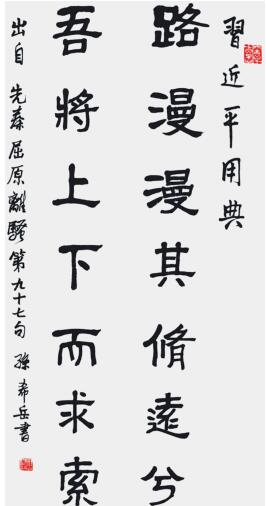 習近平用典
路漫漫其脩遠兮
吾將上下而求索
出自 先秦屈原離騷第九十七句 孫希岳書